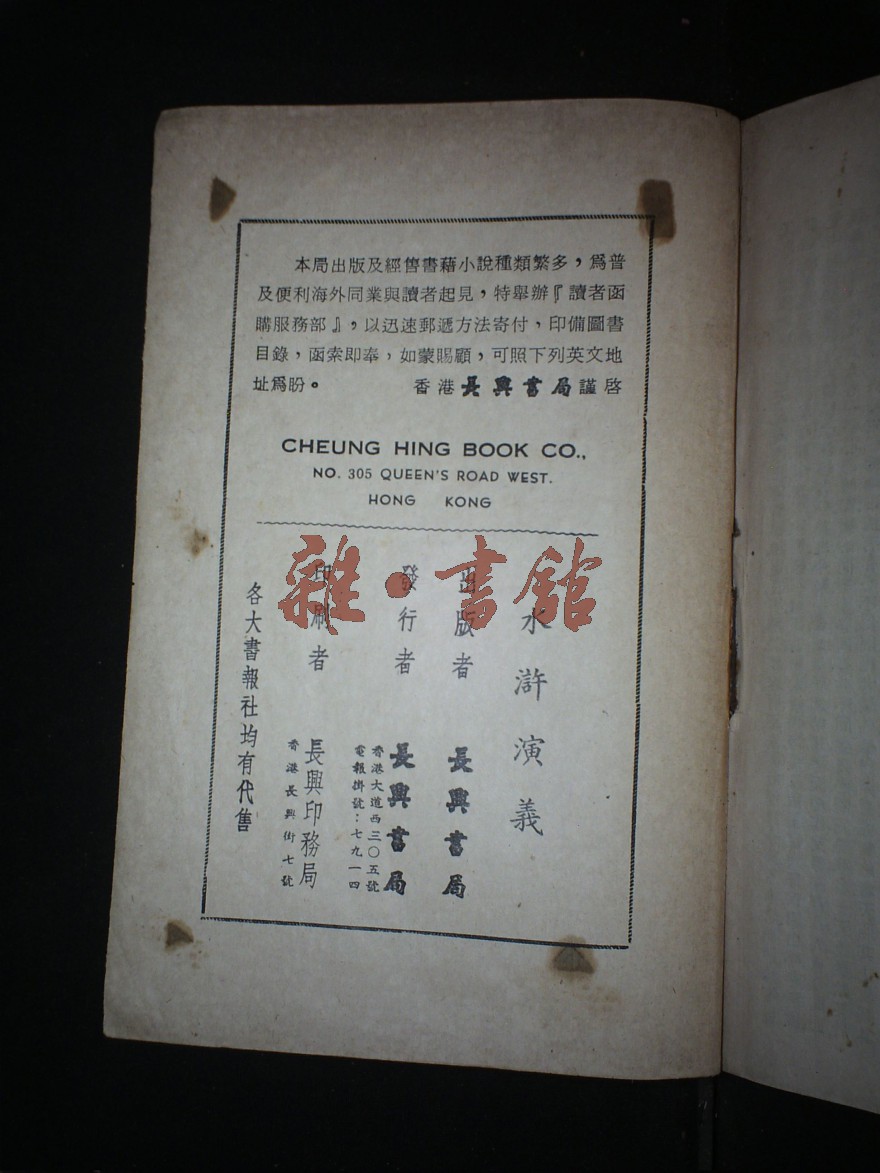 本局出版及經售書藉小說種類繁多，爲普
及便利海外同業與讀者起見，特舉辦『讀者函
購服務部』，以迅速郵遞方法寄付，印備圖書
目錄，函索即奉，如蒙賜顧，可照下列英文地
址爲盼。 香港長興書局謹啓
CHEUNG HING BOOK CO.,
NO. 305 QUEEN'S ROAD WEST.
HONG KONG
雜·書館
水滸演義
出版者 長興書局
發行者 長興書局
香港大道西三〇五號
電報掛號：七九一四
印刷者 長興印務局
香港長興街七號
各大書報社均有代售